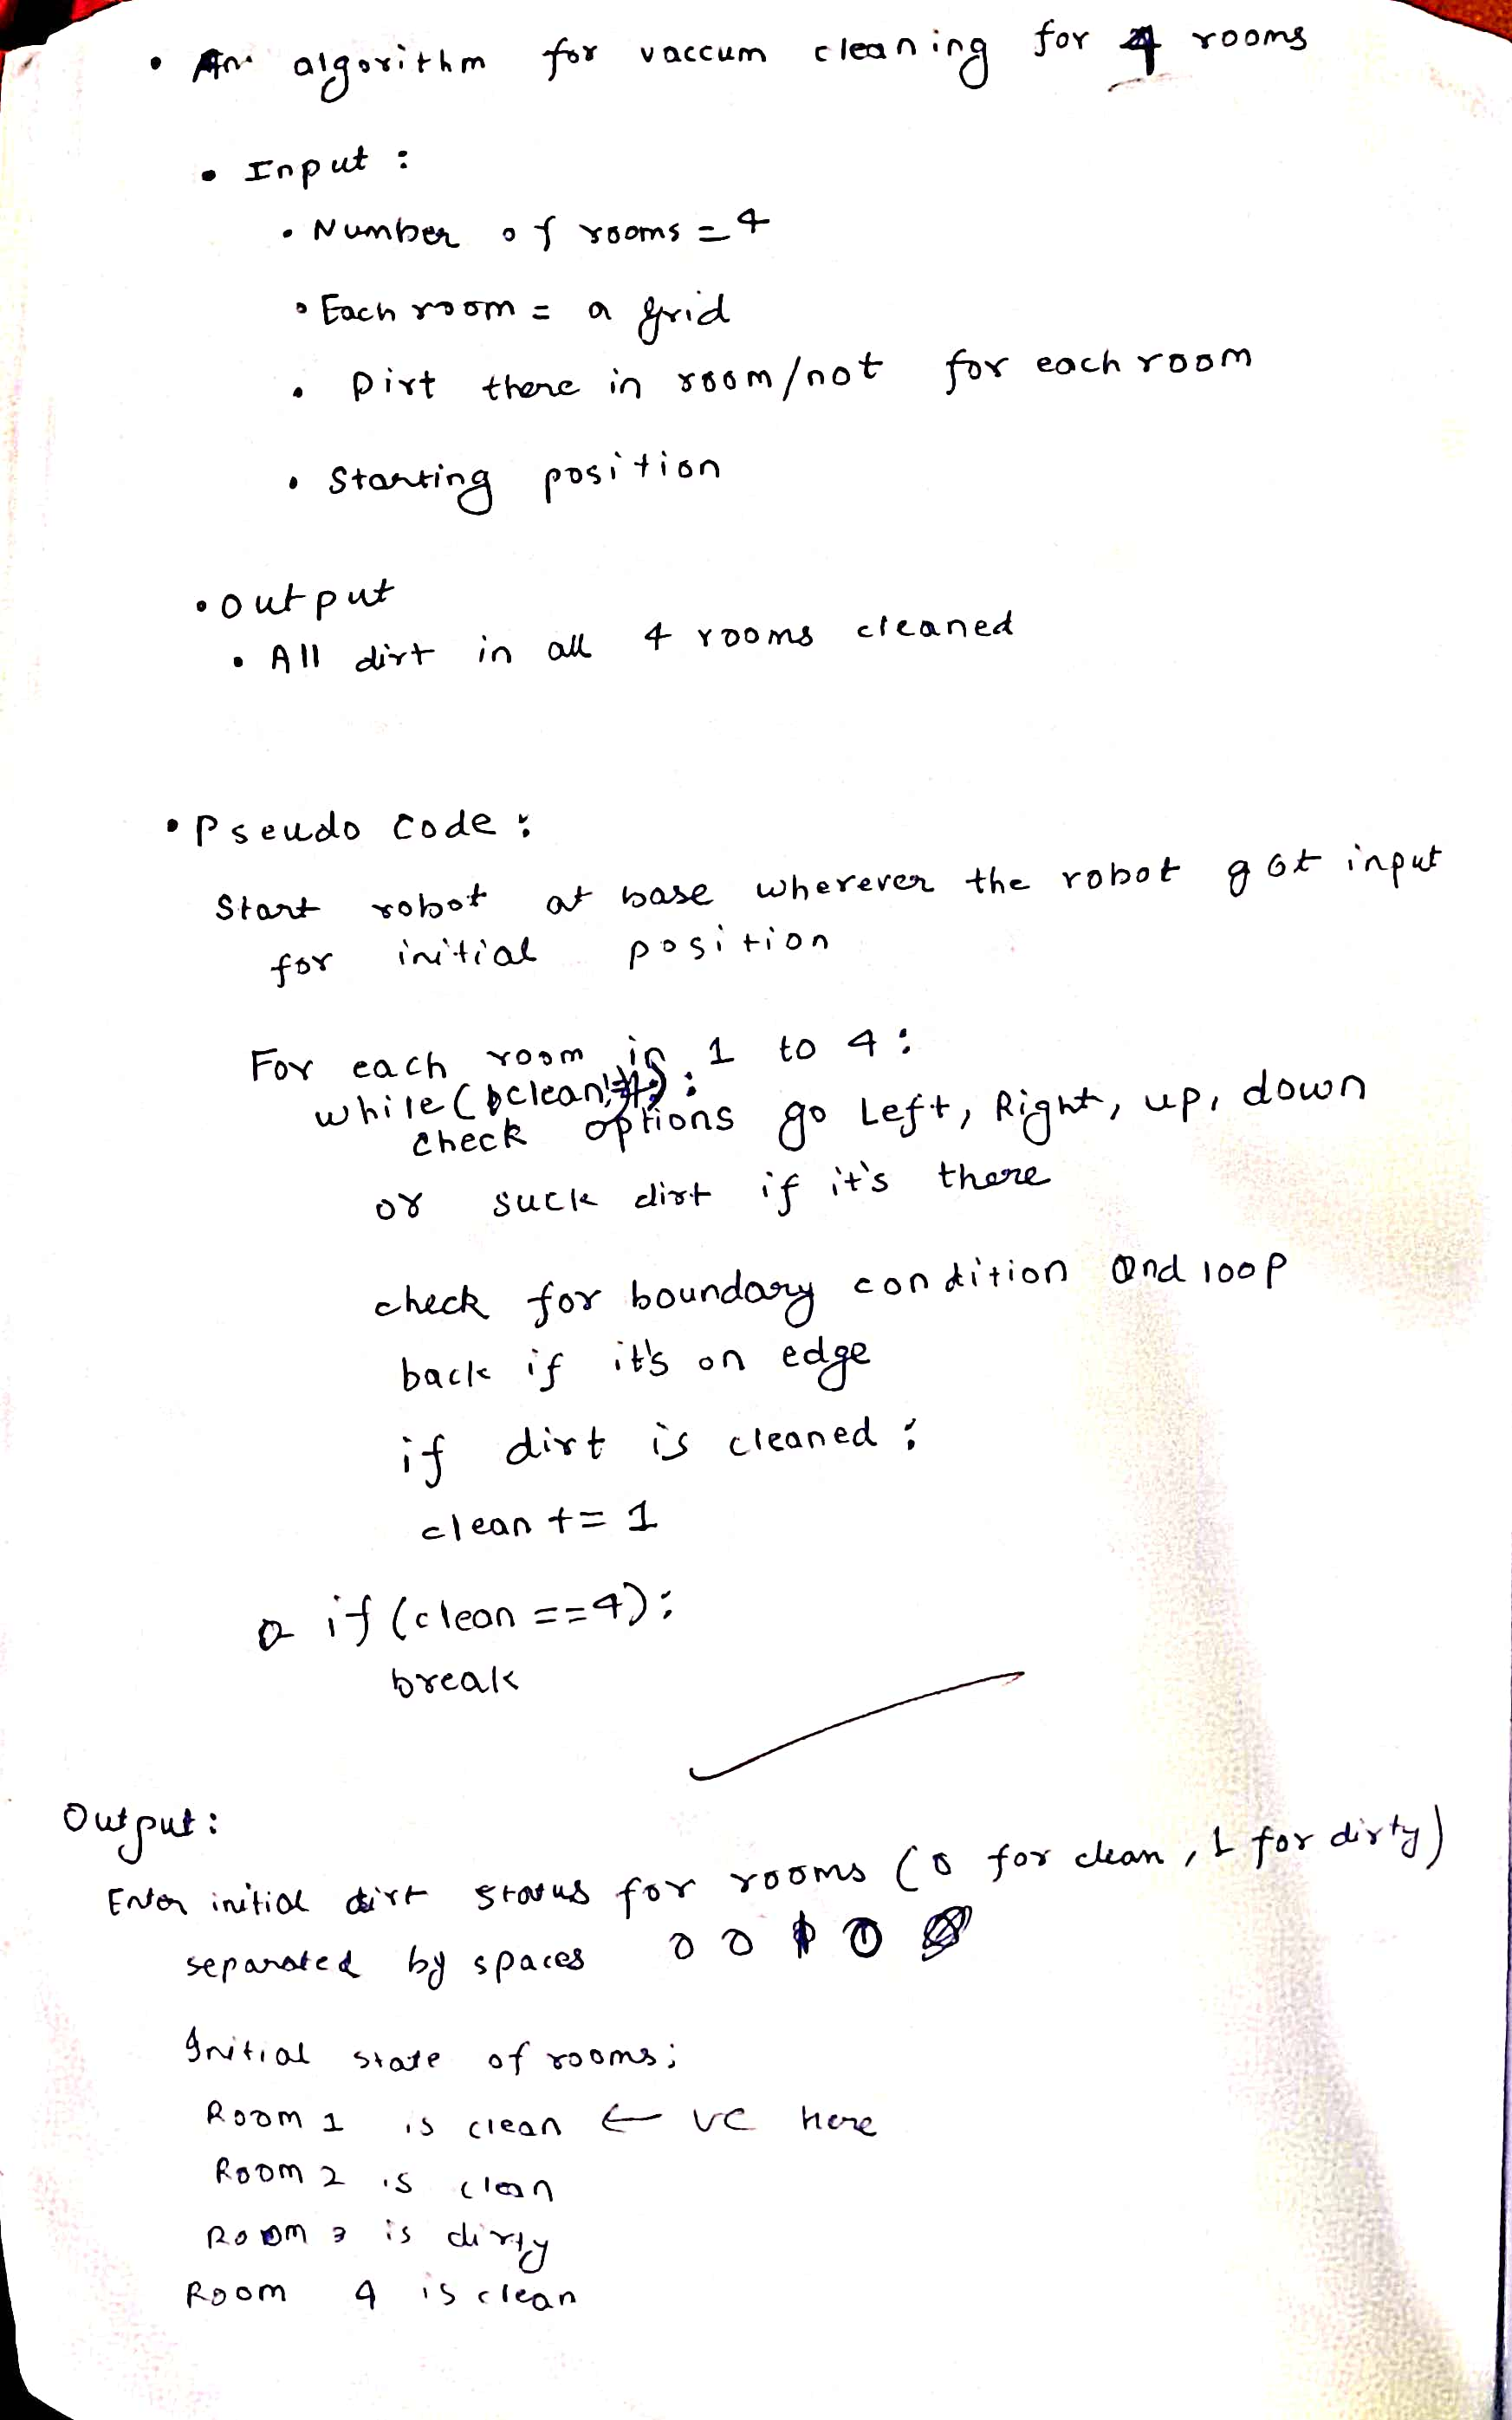 • An algorithm for vaccum cleaning for 4 rooms
• Input :
• Number of rooms = 4
• Each room = a grid
• Dirt there in room/not for each room
• Starting position
• output
• All dirt in all 4 rooms cleaned
• Pseudo code :
Start robot at base wherever the robot got input
for initial position
For each room in 1 to 4 :
while (clean!=4) :
check options go Left, Right, up, down
or suck dirt if it's there
check for boundary condition and loop
back if it's on edge
if dirt is cleaned :
clean += 1
if (clean ==4) :
break
Output :
Enter initial dirt status for rooms (0 for clean , 1 for dirty)
separated by spaces 0 0 1 0
Initial state of rooms ;
Room 1 is clean ← vc here
Room 2 is clean
Room 3 is dirty
Room 4 is clean